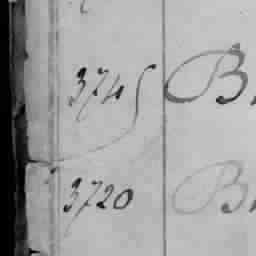 3745 B
3720 B